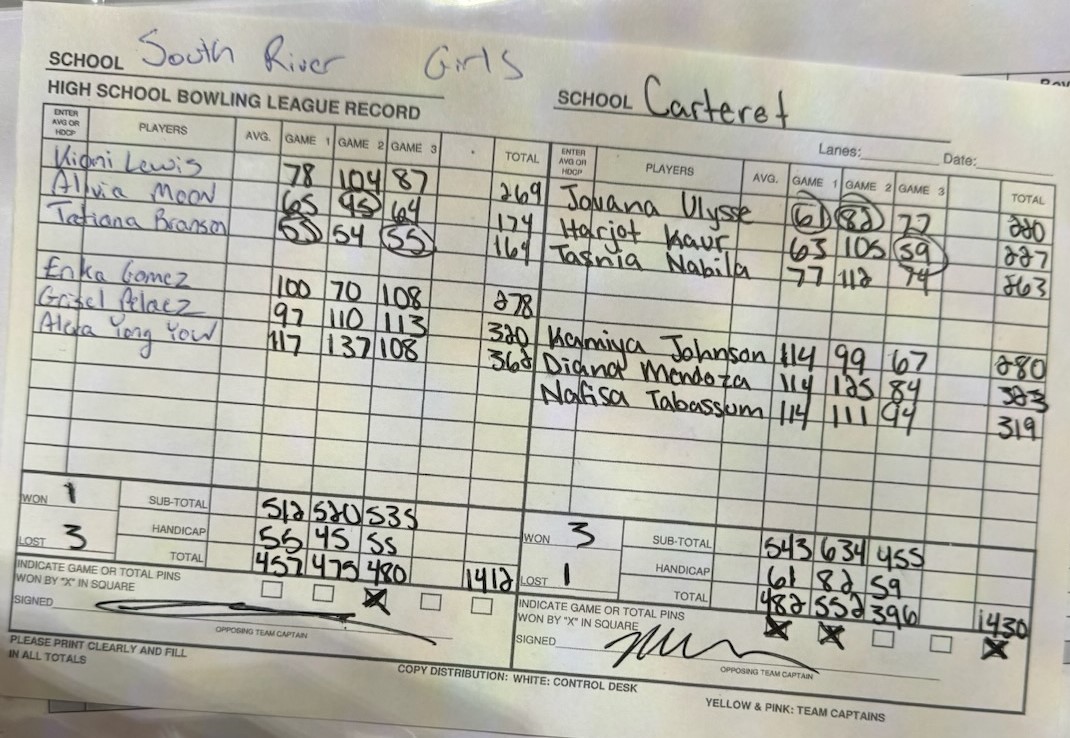 SCHOOL South River Girls
SCHOOL Carteret
HIGH SCHOOL BOWLING LEAGUE RECORD
Lanes: Date:
ENTER AVG OR HDCP PLAYERS AVG. GAME 1 GAME 2 GAME 3 TOTAL
ENTER AVG OR HDCP PLAYERS AVG. GAME 1 GAME 2 GAME 3 TOTAL
Kioni Lewis 78 104 87 269
Alivia Moon 65 95 64 174
Tatiana Branson 55 54 55 164
Erika Gomez 100 70 108 278
Grisel Pelaez 97 110 113 320
Alexa Yong Yow 117 137 108 362
Jovana Ulysse 61 82 77 220
Harjot Kaur 63 105 59 227
Tasnia Nabila 77 112 74 263
Kamiya Johnson 114 99 67 280
Diana Mendoza 114 125 84 323
Nafisa Tabassum 114 111 94 319
WON 1
LOST 3
SUB-TOTAL 512 520 535
HANDICAP 55 45 55
TOTAL 457 475 480 1412
INDICATE GAME OR TOTAL PINS
WON BY "X" IN SQUARE X
SIGNED
OPPOSING TEAM CAPTAIN
WON 3
LOST 1
SUB-TOTAL 543 634 455
HANDICAP 61 82 59
TOTAL 482 552 396 1430
INDICATE GAME OR TOTAL PINS
WON BY "X" IN SQUARE X X X
SIGNED
OPPOSING TEAM CAPTAIN
PLEASE PRINT CLEARLY AND FILL
IN ALL TOTALS
COPY DISTRIBUTION: WHITE: CONTROL DESK
YELLOW & PINK: TEAM CAPTAINS